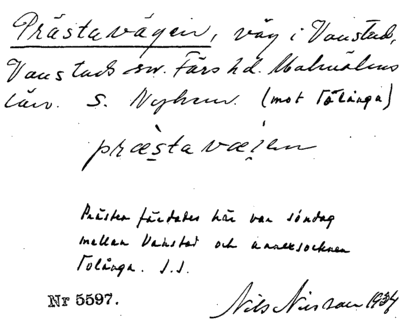 Prästavägen, väg i Vanstad,
Vanstads sn. Färs hd. Malmöhus
län. S. Nyhem. (mot Tolånga)
præstavæien
Prästen färdades här var söndag
mellan Vanstad och annexsocknen
Tolånga. S.S.
Nr 5597.
Nils Nilsson 1934